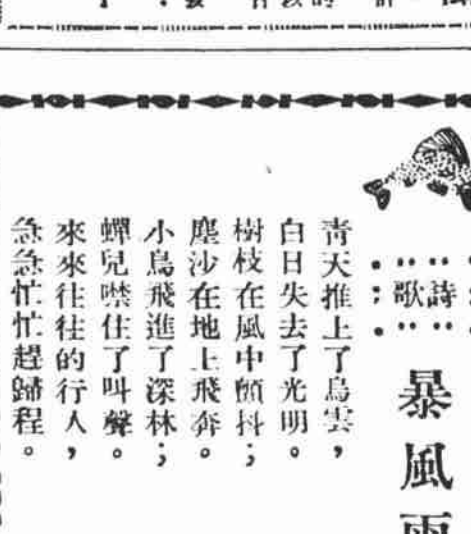 詩歌
暴風雨
青天推上了烏雲，
白日失去了光明。
樹枝在風中顫抖；
塵沙在地上飛奔。
小鳥飛進了深林；
蟬兒噤住了叫聲。
來來往往的行人，
急急忙忙趕歸程。